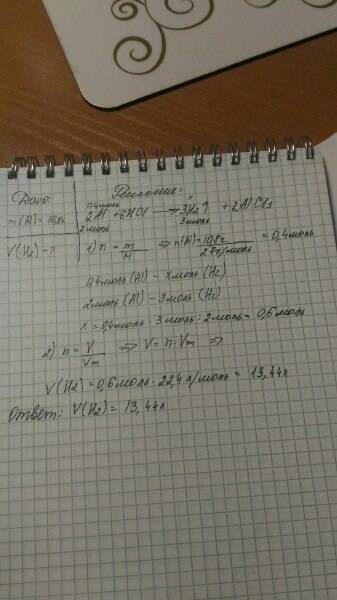 Дано: Решение:
m(Al) = 10,8г
V(H2) - ?
0,4моль x
2Al + 6HCl → 3H2↑ + 2AlCl3
2моль 3моль
1) n = m/M ⇒ n(Al) = 10,8г / 27г/моль = 0,4моль
0,4моль (Al) - x моль (H2)
2моль (Al) - 3моль (H2)
x = 0,4моль · 3моль : 2моль = 0,6моль
2) n = V/Vm ⇒ V = n · Vm ⇒
V(H2) = 0,6моль · 22,4л/моль = 13,44л
Ответ: V(H2) = 13,44л